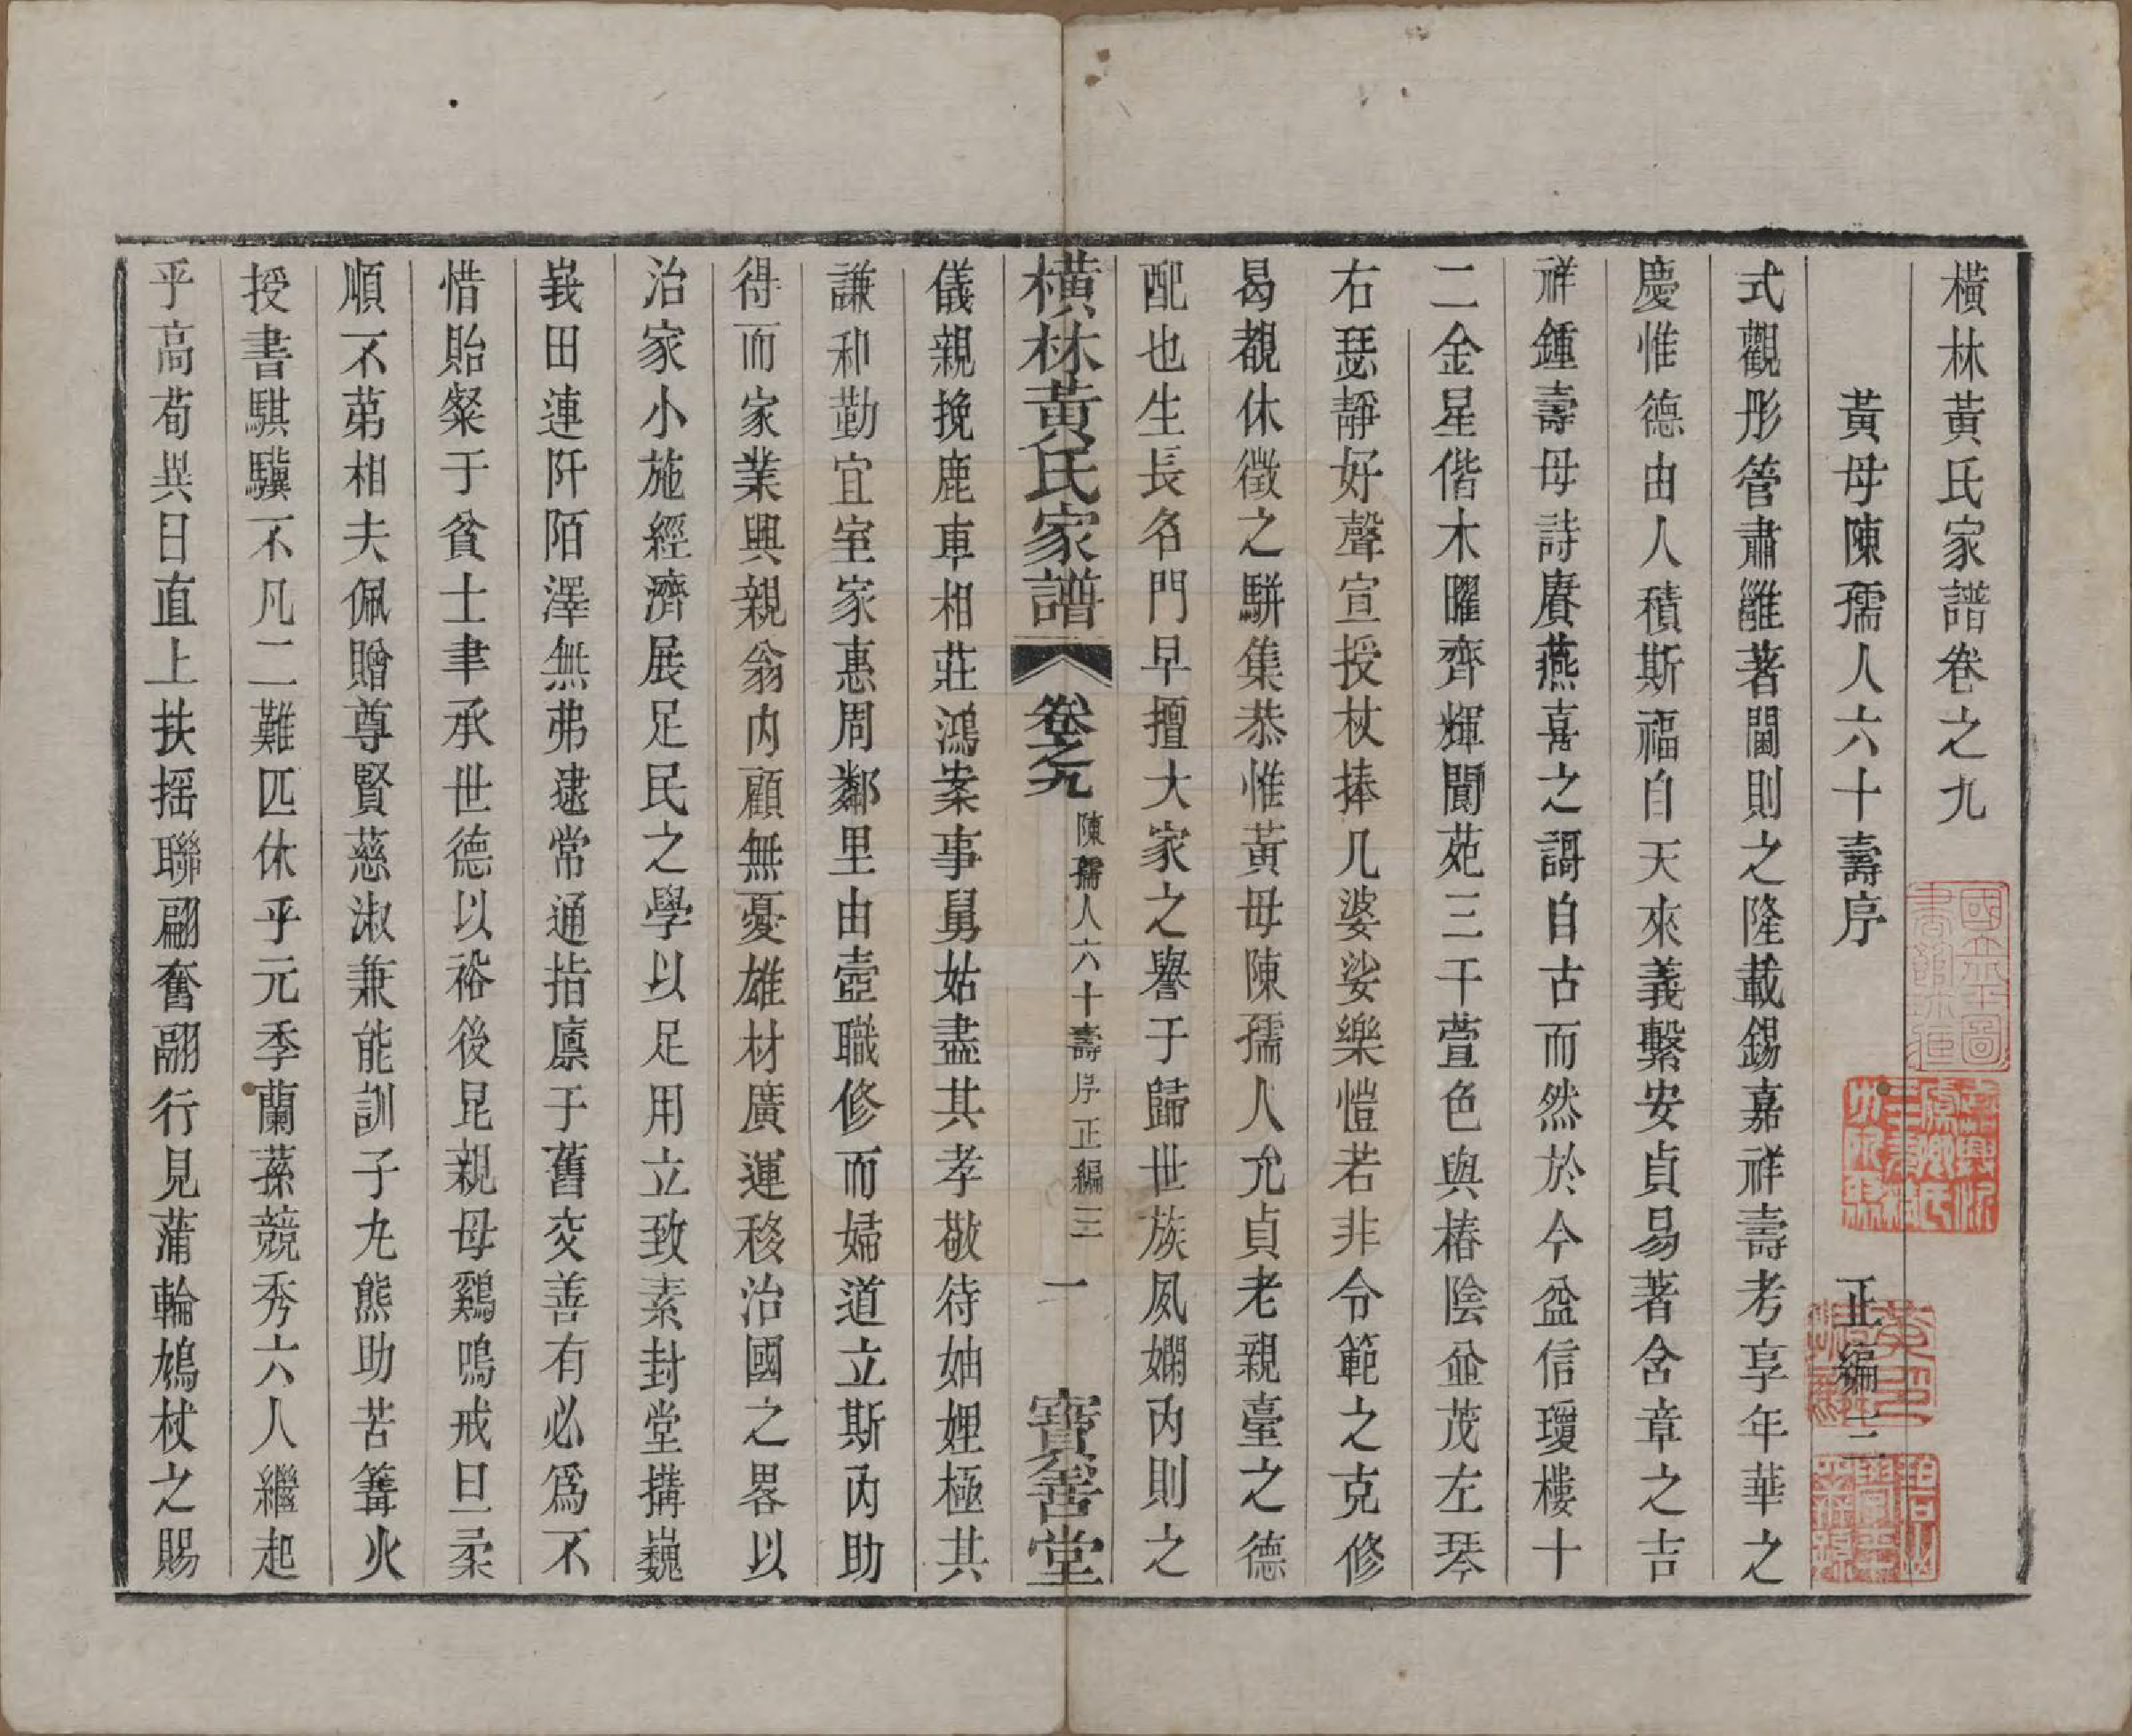 橫林黃氏家譜卷之九
黃母陳孺人六十壽序　正編三
式觀彤管肅雝著閫則之隆載錫嘉祥壽考享年華之
慶惟德由人積斯福自天來義繫安貞易著含章之吉
祥鍾壽母詩賡燕喜之謌自古而然於今益信瓊樓十
二金星偕木曜齊輝閬苑三千萱色與椿陰並茂左琴
右瑟靜好聲宣授杖捧几婆娑樂愷若非令範之克修
曷覩休徵之駢集恭惟黃母陳孺人允貞老親臺之德
配也生長名門早擅大家之譽于歸世族夙嫻內則之
橫林黃氏家譜　卷之九　陳孺人六十壽序正編三　一　寶善堂
儀親挽鹿車相莊鴻案事舅姑盡其孝敬待妯娌極其
謙和勤宜室家惠周鄰里由壼職修而婦道立斯內助
得而家業興親翁內顧無憂雄材廣運移治國之畧以
治家小施經濟展足民之學以足用立致素封堂搆巍
峩田連阡陌澤無弗逮常通指廩于舊交善有必爲不
惜貽粲于貧士聿承世德以裕後昆親母鷄鳴戒旦柔
順不第相夫佩贈尊賢慈淑兼能訓子丸熊助苦篝火
授書騏驥不凡二難匹休乎元季蘭蓀競秀六人繼起
乎高荀異日直上扶搖聯翩奮翮行見蒲輪鳩杖之賜